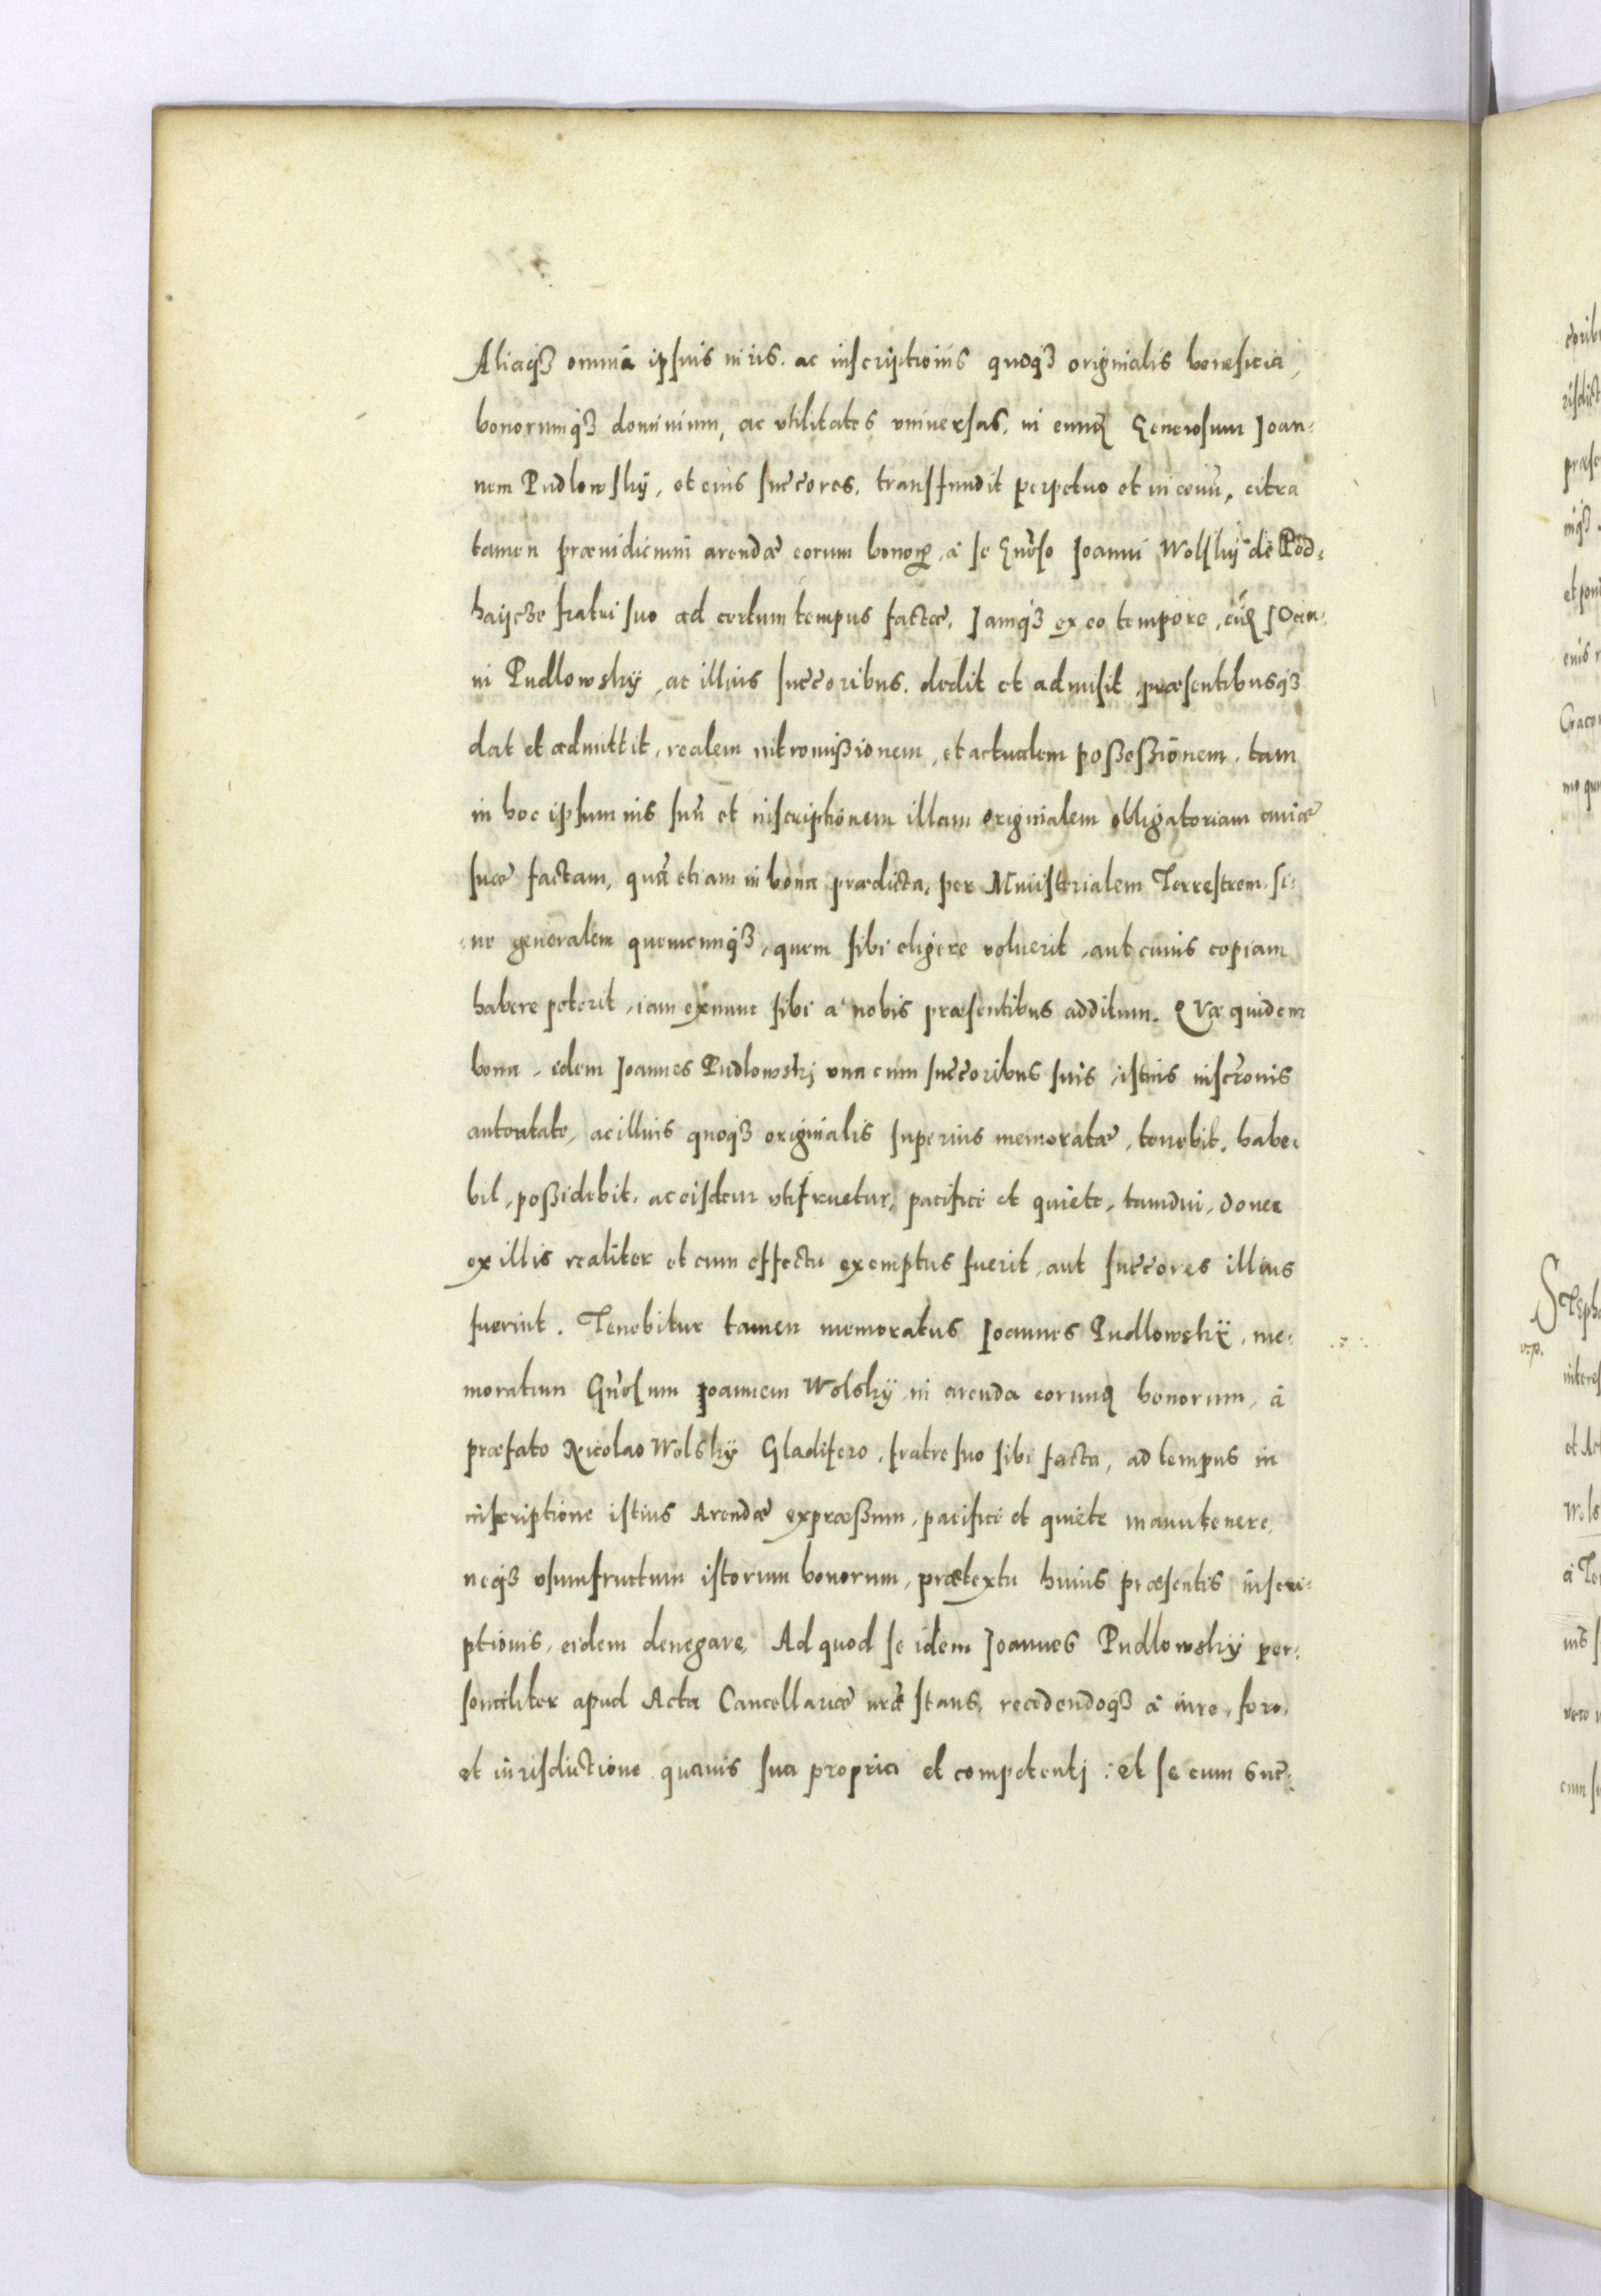 Aliaqȝ omnia ipsius iuris. ac inscriptionis quoqȝ originalis beneficia,
bonorumqȝ dominium, ac vtilitates vniuersas, in eund Generosum Joan:
nem Pudlowskÿ, et eius succores, transfundit perpetuo et in æuũ, citra
tamen præiudicium arendæ eorum bonorꝝ, à se Gñoso Joanni Wolskÿ de Pod:
haÿcze fratri suo ad certum tempus factæ, Jamqȝ ex eo tempore, eid Joan:
ni Pudlowskÿ, ac illius succoribus. dedit et admisit, præsentibusqȝ
dat et admittit, realem intromißionem, et actualem poßeßionem. tam
in hoc ipsum ius suũ et inscriptionem illam originalem obligatoriam auiæ
suæ factam, quã etiam in bona prædicta, per Ministerialem Terrestrem. si:
:ue generalem quemcunqȝ, quem sibi eligere voluerit, aut cuius copiam
habere poterit, iam exnunc sibi à nobis præsentibus additum. Quæ quidem
bona, idem Joannes Pudlowskj vna cum succoribus suis, istius inscrõnis
autoritate, ac illius quoqȝ originalis superius memoratæ, tenebit. habe:
bit, poßidebit. ac eisdem vtifruetur, pacifice et quiete, tamdiu, donec
ex illis realiter et cum effectu exemptus fuerit, aut succores illius
fuerint. Tenebitur tamen memoratus Joannes Pudlowskÿ, me:
moratum Gñosum Joannem Wolskÿ in arenda eorund bonorum, à
præfato Nicolao Wolskÿ Gladifero, fratre suo sibi facta, ad tempus in
inscriptione istius Arendæ expræßum, pacifice et quiete manutenere,
neqȝ vsumfructum istorum bonorum, prætextu huius præsentis inscri:
ptionis, eidem denegare, Ad quod se idem Joannes Pudlowskÿ per:
sonaliter apud Acta Cancellariæ nræ stans, recedendoqȝ à iure, foro,
et iurisdictione quauis sua propria et competentj: et se cum suc: